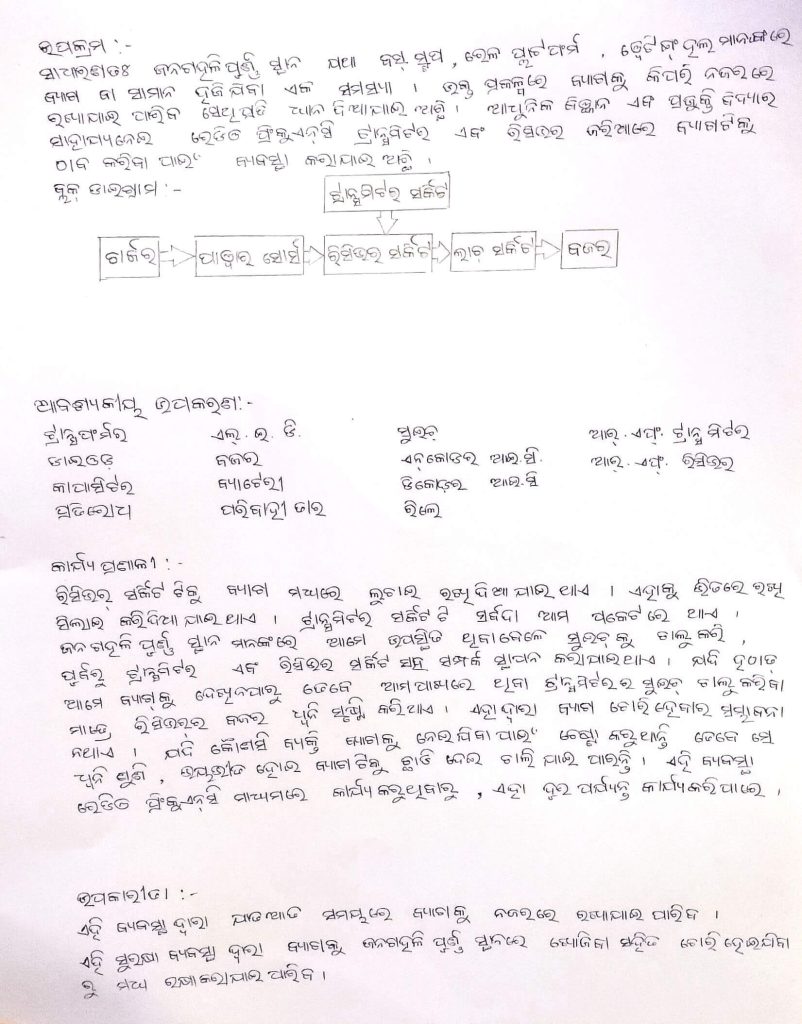 ଉପକ୍ରମ :-
ସାଧାରଣତଃ ଜନଗହଳି ପୁର୍ଣ୍ଣ ସ୍ଥାନ ଯଥା ବସ୍ ଷ୍ଟପ, ରେଳ ପ୍ଲାଟଫର୍ମ, ୱେଟିଙ୍ଗ୍ ହଲ୍ ମାନଙ୍କରେ
ବ୍ୟାଗ ବା ସାମାନ ହଜି ଯିବା ଏକ ସମସ୍ୟା । ଉକ୍ତ ପ୍ରକଳ୍ପରେ ବ୍ୟାଗକୁ କିପରି ନଜରରେ
ରଖାଯାଇ ପାରିବ ସେଥିପ୍ରତି ଧ୍ୟାନ ଦିଆଯାଇ ଅଛି । ଆଧୁନିକ ବିଜ୍ଞାନ ଏବଂ ପ୍ରଯୁକ୍ତି ବିଦ୍ୟାର
ସାହାଯ୍ୟନେଇ ରେଡିଓ ଫ୍ରିକୁଏନ୍ସି ଟ୍ରାନ୍ସମିଟର ଏବଂ ରିସିଭର ଜରିଆରେ ବ୍ୟାଗଟିକୁ
ଠାବ କରିବା ପାଇଁ ବ୍ୟବସ୍ଥା କରାଯାଇ ଅଛି ।
ବ୍ଲକ୍ ଡାଇଗ୍ରାମ :-
ଟ୍ରାନ୍ସମିଟର ସର୍କିଟ
ଚାର୍ଜର ପାୱାର ସୋର୍ସ ରିସିଭର ସର୍କିଟ ଲାଚ୍ ସର୍କିଟ ବଜର
ଆବଶ୍ୟକୀୟ ଉପକରଣ:-
ଟ୍ରାନ୍ସଫର୍ମର ଏଲ୍.ଇ.ଡି. ସୁଇଚ୍ ଆର୍.ଏଫ୍. ଟ୍ରାନ୍ସମିଟର
ଡାଇଓଡ୍ ବଜର ଏନ୍‌କୋଡର ଆଇ.ସି. ଆର୍.ଏଫ୍. ରିସିଭର
କାପାସିଟର ବ୍ୟାଟେରୀ ଡିକୋଡ୍‌ର ଆଇ.ସି
ପ୍ରତିରୋଧ ପରିବାହୀ ତାର ରିଲେ
କାର୍ଯ୍ୟ ପ୍ରଣାଳୀ :-
ରିସିଭର୍ ସର୍କିଟ ଟିକୁ ବ୍ୟାଗ ମଧ୍ୟରେ ଲୁଚାଇ ରଖିଦିଆ ଯାଇ ଥାଏ । ଏହାକୁ ଭିତରେ ରଖି
ସିଲାଇ କରିଦିଆ ଯାଇ ଥାଏ । ଟ୍ରାନ୍ସମିଟର ସର୍କିଟ ଟି ସର୍ବଦା ଆମ ପକେଟ ରେ ଥାଏ ।
ଜନ ଗହଳି ପୁର୍ଣ୍ଣ ସ୍ଥାନ ମାନଙ୍କରେ ଆମେ ଉପସ୍ଥିତ ଥିବା ବେଳେ ସୁଇଚ୍ କୁ ଚାଲୁ କରି,
ପୁର୍ବରୁ ଟ୍ରାନ୍ସମିଟର ଏବଂ ରିସିଭର ସର୍କିଟ ସହ ସମ୍ପର୍କ ସ୍ଥାପନ କରାଯାଇଥାଏ । ଯଦି ହଠାତ୍
ଆମେ ବ୍ୟାଗ୍‌କୁ ଦେଖିନପାରୁ ତେବେ ଆମପାଖରେ ଥିବା ଟ୍ରାନ୍ସମିଟର ର ସୁଇଚ୍ ଚାଲୁ କରିବା
ମାତ୍ରେ ରିସିଭର୍‌ର ବଜର ଧ୍ୱନି ସୃଷ୍ଟି କରିଥାଏ । ଏହା ଦ୍ୱାରା ବ୍ୟାଗ ଚୋରି ହେବାର ସମ୍ଭାବନା
ନଥାଏ । ଯଦି କୌଣସି ବ୍ୟକ୍ତି ବ୍ୟାଗକୁ ନେଇ ଯିବା ପାଇଁ ଚେଷ୍ଟା କରୁଥାନ୍ତି ତେବେ ସେ
ଧ୍ୱନି ଶୁଣି, ଭୟଭୀତ ହୋଇ ବ୍ୟାଗ ଟିକୁ ଛାଡି ଦେଇ ଚାଲି ଯାଇ ପାରନ୍ତି । ଏହି ବ୍ୟବସ୍ଥା
ରେଡିଓ ଫ୍ରିକୁଏନ୍‌ସି ମାଧ୍ୟମରେ କାର୍ଯ୍ୟ କରୁଥିବାରୁ, ଏହା ଦୁର ପର୍ଯ୍ୟନ୍ତ କାର୍ଯ୍ୟକରି ପାରେ ।
ଉପକାରୀତା :-
ଏହି ବ୍ୟବସ୍ଥା ଦ୍ୱାରା ଯାତଆତ ସମୟରେ ବ୍ୟାଗ କୁ ନଜରରେ ରଖାଯାଇ ପାରିବ ।
ଏହି ସୁରକ୍ଷା ବ୍ୟବସ୍ଥା ଦ୍ୱାରା ବ୍ୟାଗକୁ ଜନଗହଳି ପୁର୍ଣ୍ଣ ସ୍ଥାନରେ ଖୋଜିବା ସହିତ ଚୋରି ହୋଇଯିବା
ରୁ ମଧ୍ୟ ରକ୍ଷା କରାଯାଇ ପାରିବ ।